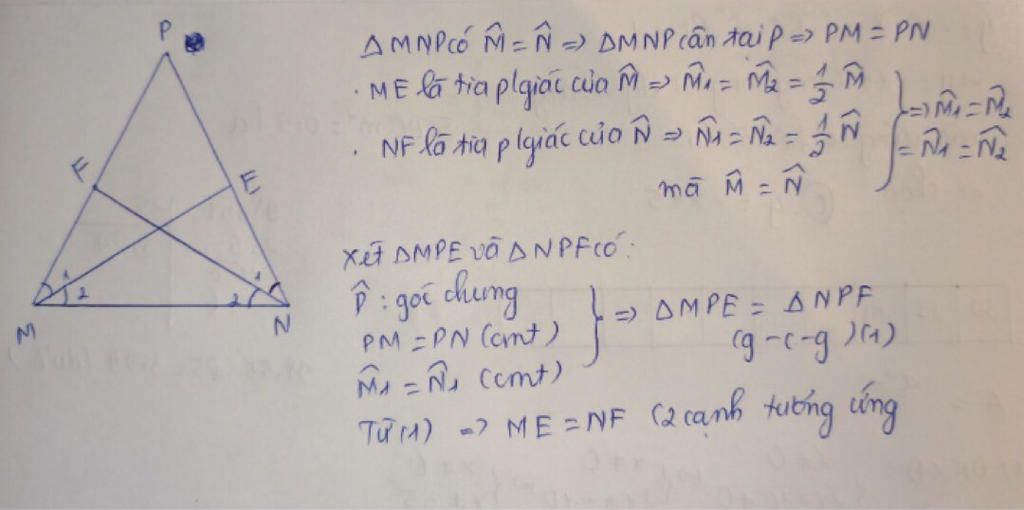 P
F
E
1
2
1
2
M
N
ΔMNP có M̂ = N̂ => ΔMNP cân tại P => PM = PN
. ME là tia p/giác của M̂ => M̂1 = M̂2 = 1/2 M̂
. NF là tia p/giác của N̂ => N̂1 = N̂2 = 1/2 N̂
mà M̂ = N̂
=> M̂1 = M̂2
= N̂1 = N̂2
Xét ΔMPE và ΔNPF có:
P̂ : góc chung
PM = PN (cmt)
M̂1 = N̂1 (cmt)
=> ΔMPE = ΔNPF
(g-c-g) (1)
Từ (1) => ME = NF (2 cạnh tương ứng